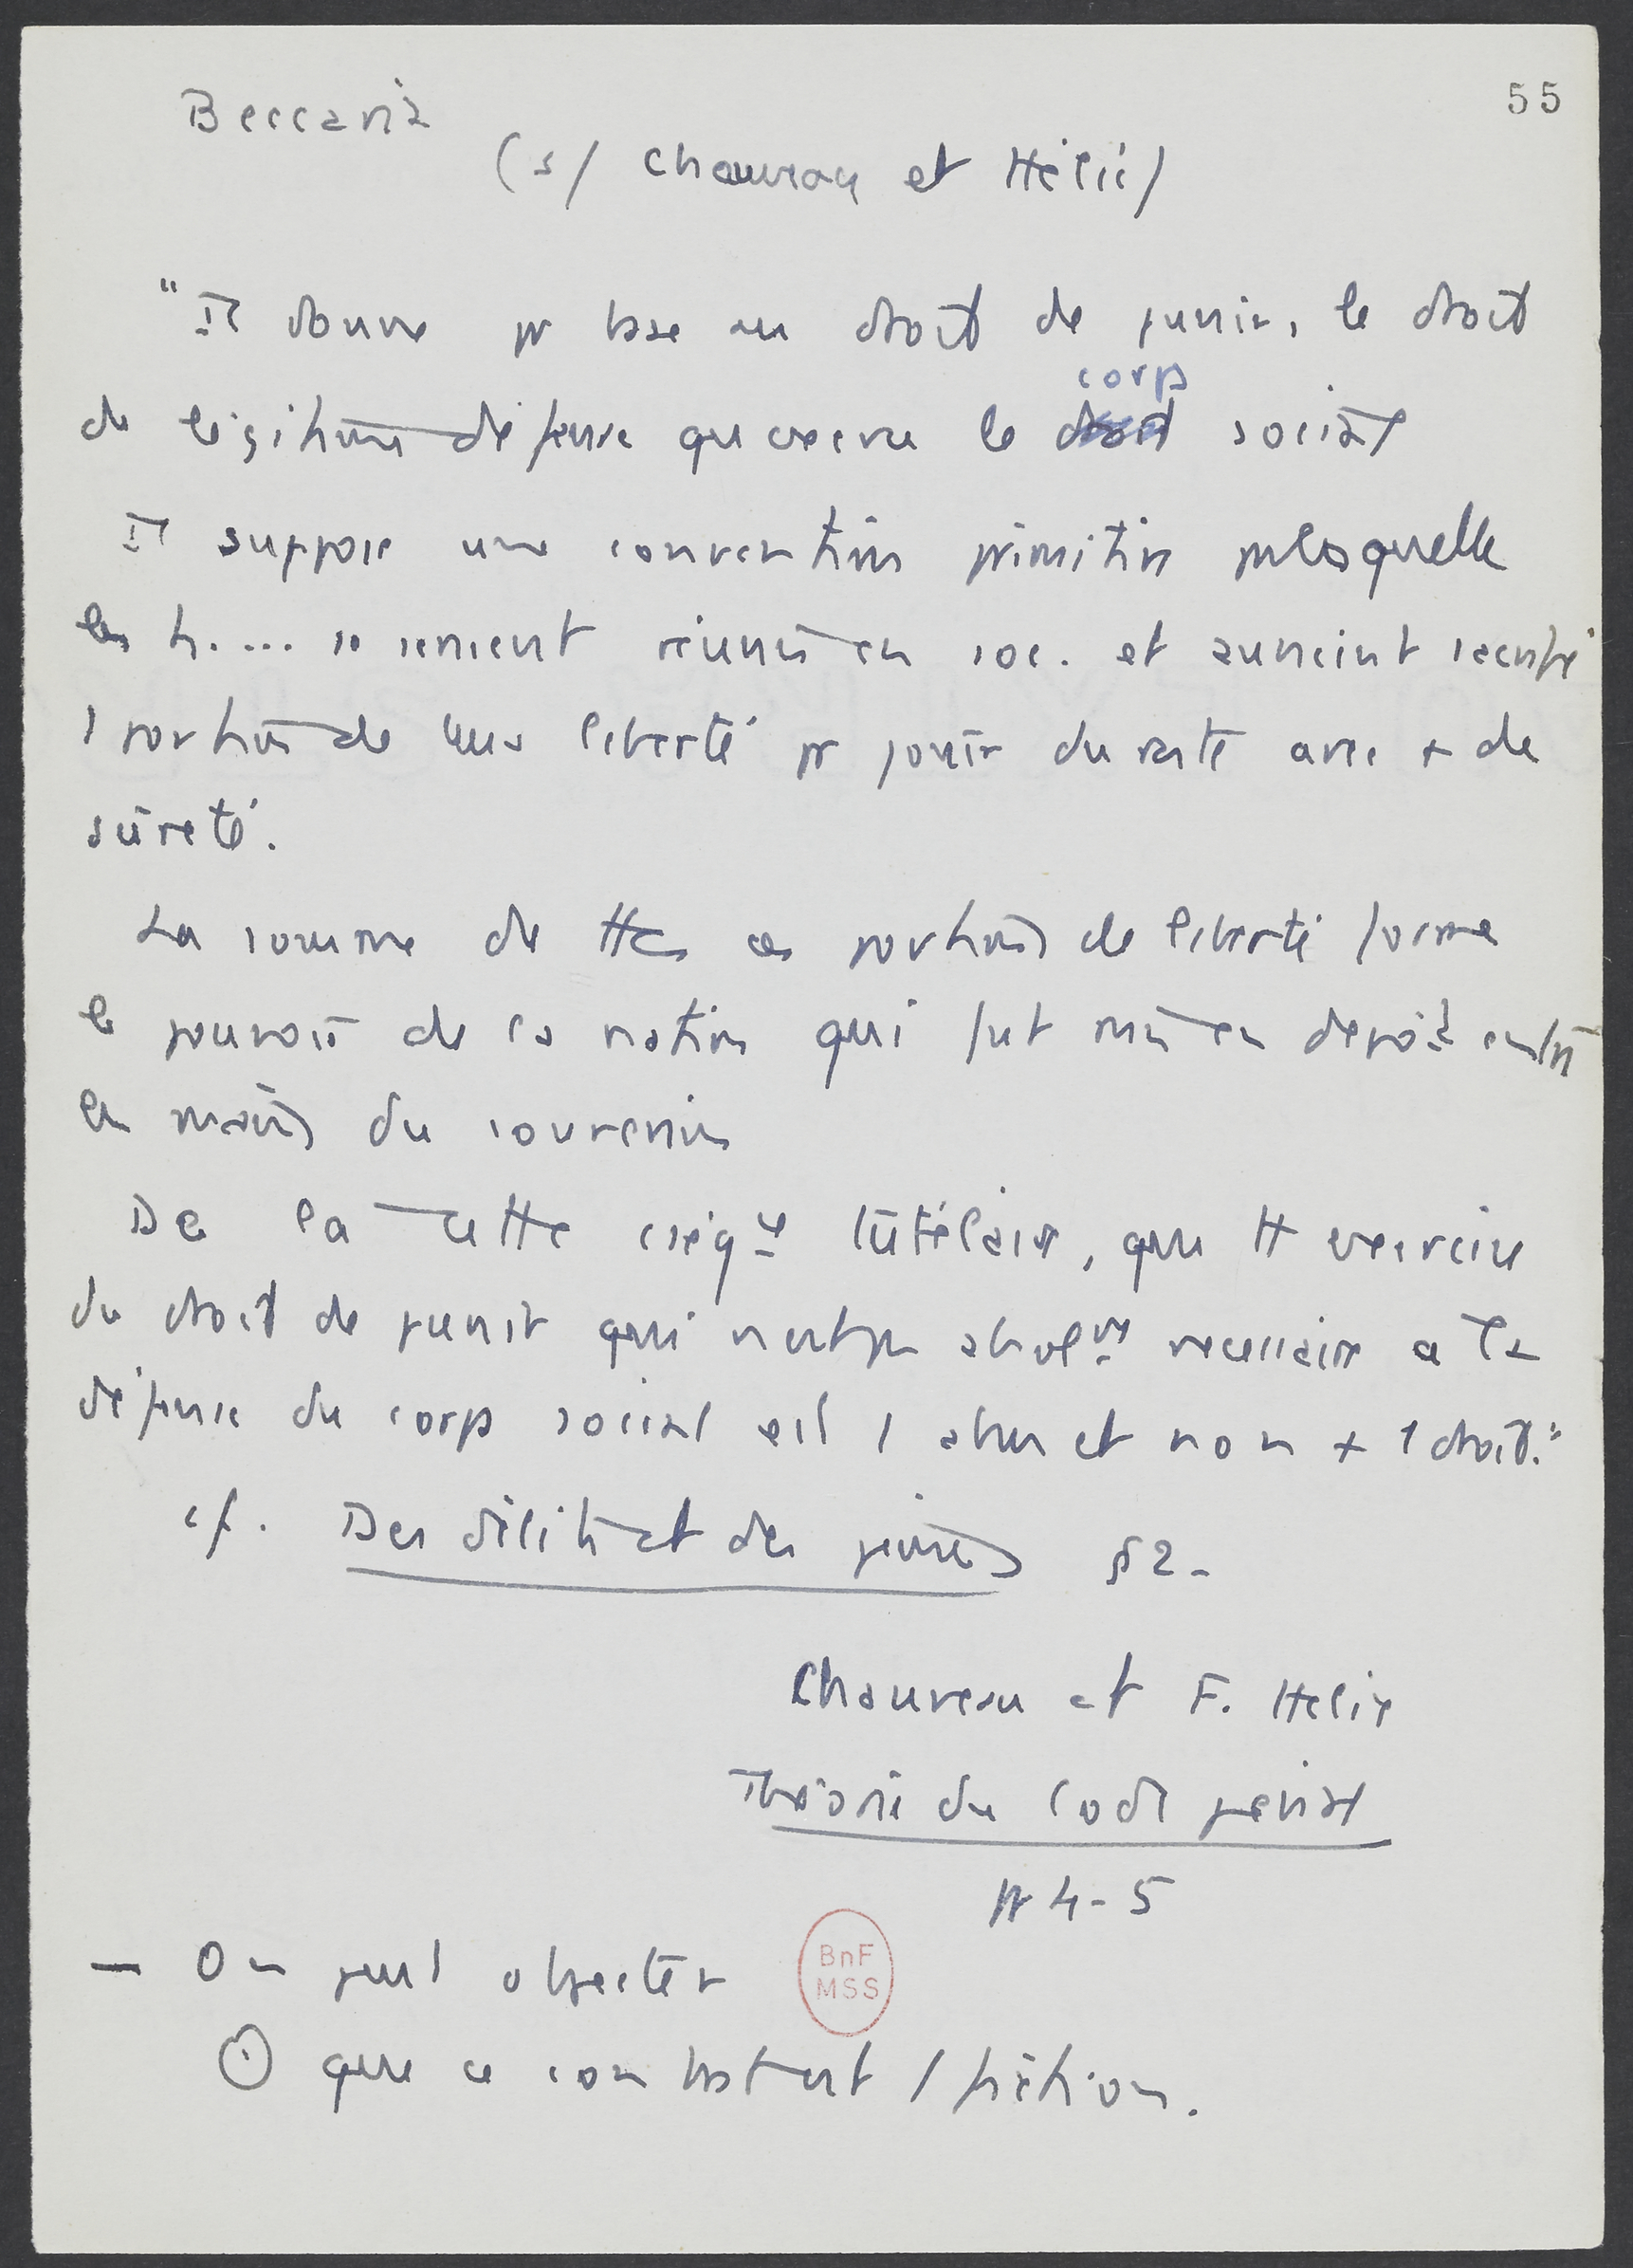 55
Beccaria
(s/ Chauveau et Hélie)
"Il donne pr base au droit de punir, le droit
de légitime défense qu'exerce le corps social
Il suppose une convention primitive par laquelle
les h.... se seraient réunis en soc. et auraient sacrifié
1 portion de leur liberté pr jouir du reste avec + de
sûreté.
La somme de ttes ces portions de liberté forme
le pouvoir de la nation qui fut mis en dépôt entre
les mains du souverain
De la cette tutélaire, que tt exercice
du droit de punir qui n'est pas absolt nécessaire a la
défense du corps social est 1 abus et non + 1 droit."
cf. Des délits et des peines §2-
Chauveau et F. Hélie
Théorie du Code pénal
pp 4-5
— On peut objecter
BnF
MSS
① que ce contrat est 1 fiction.